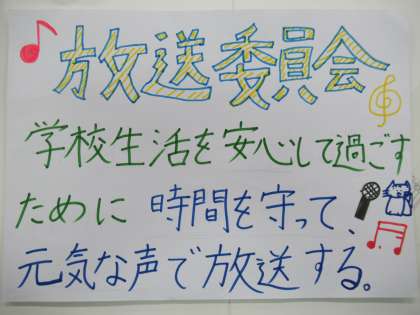 放送委員会
学校生活を安心して過ごす
ために 時間を守って、
元気な声で放送する。